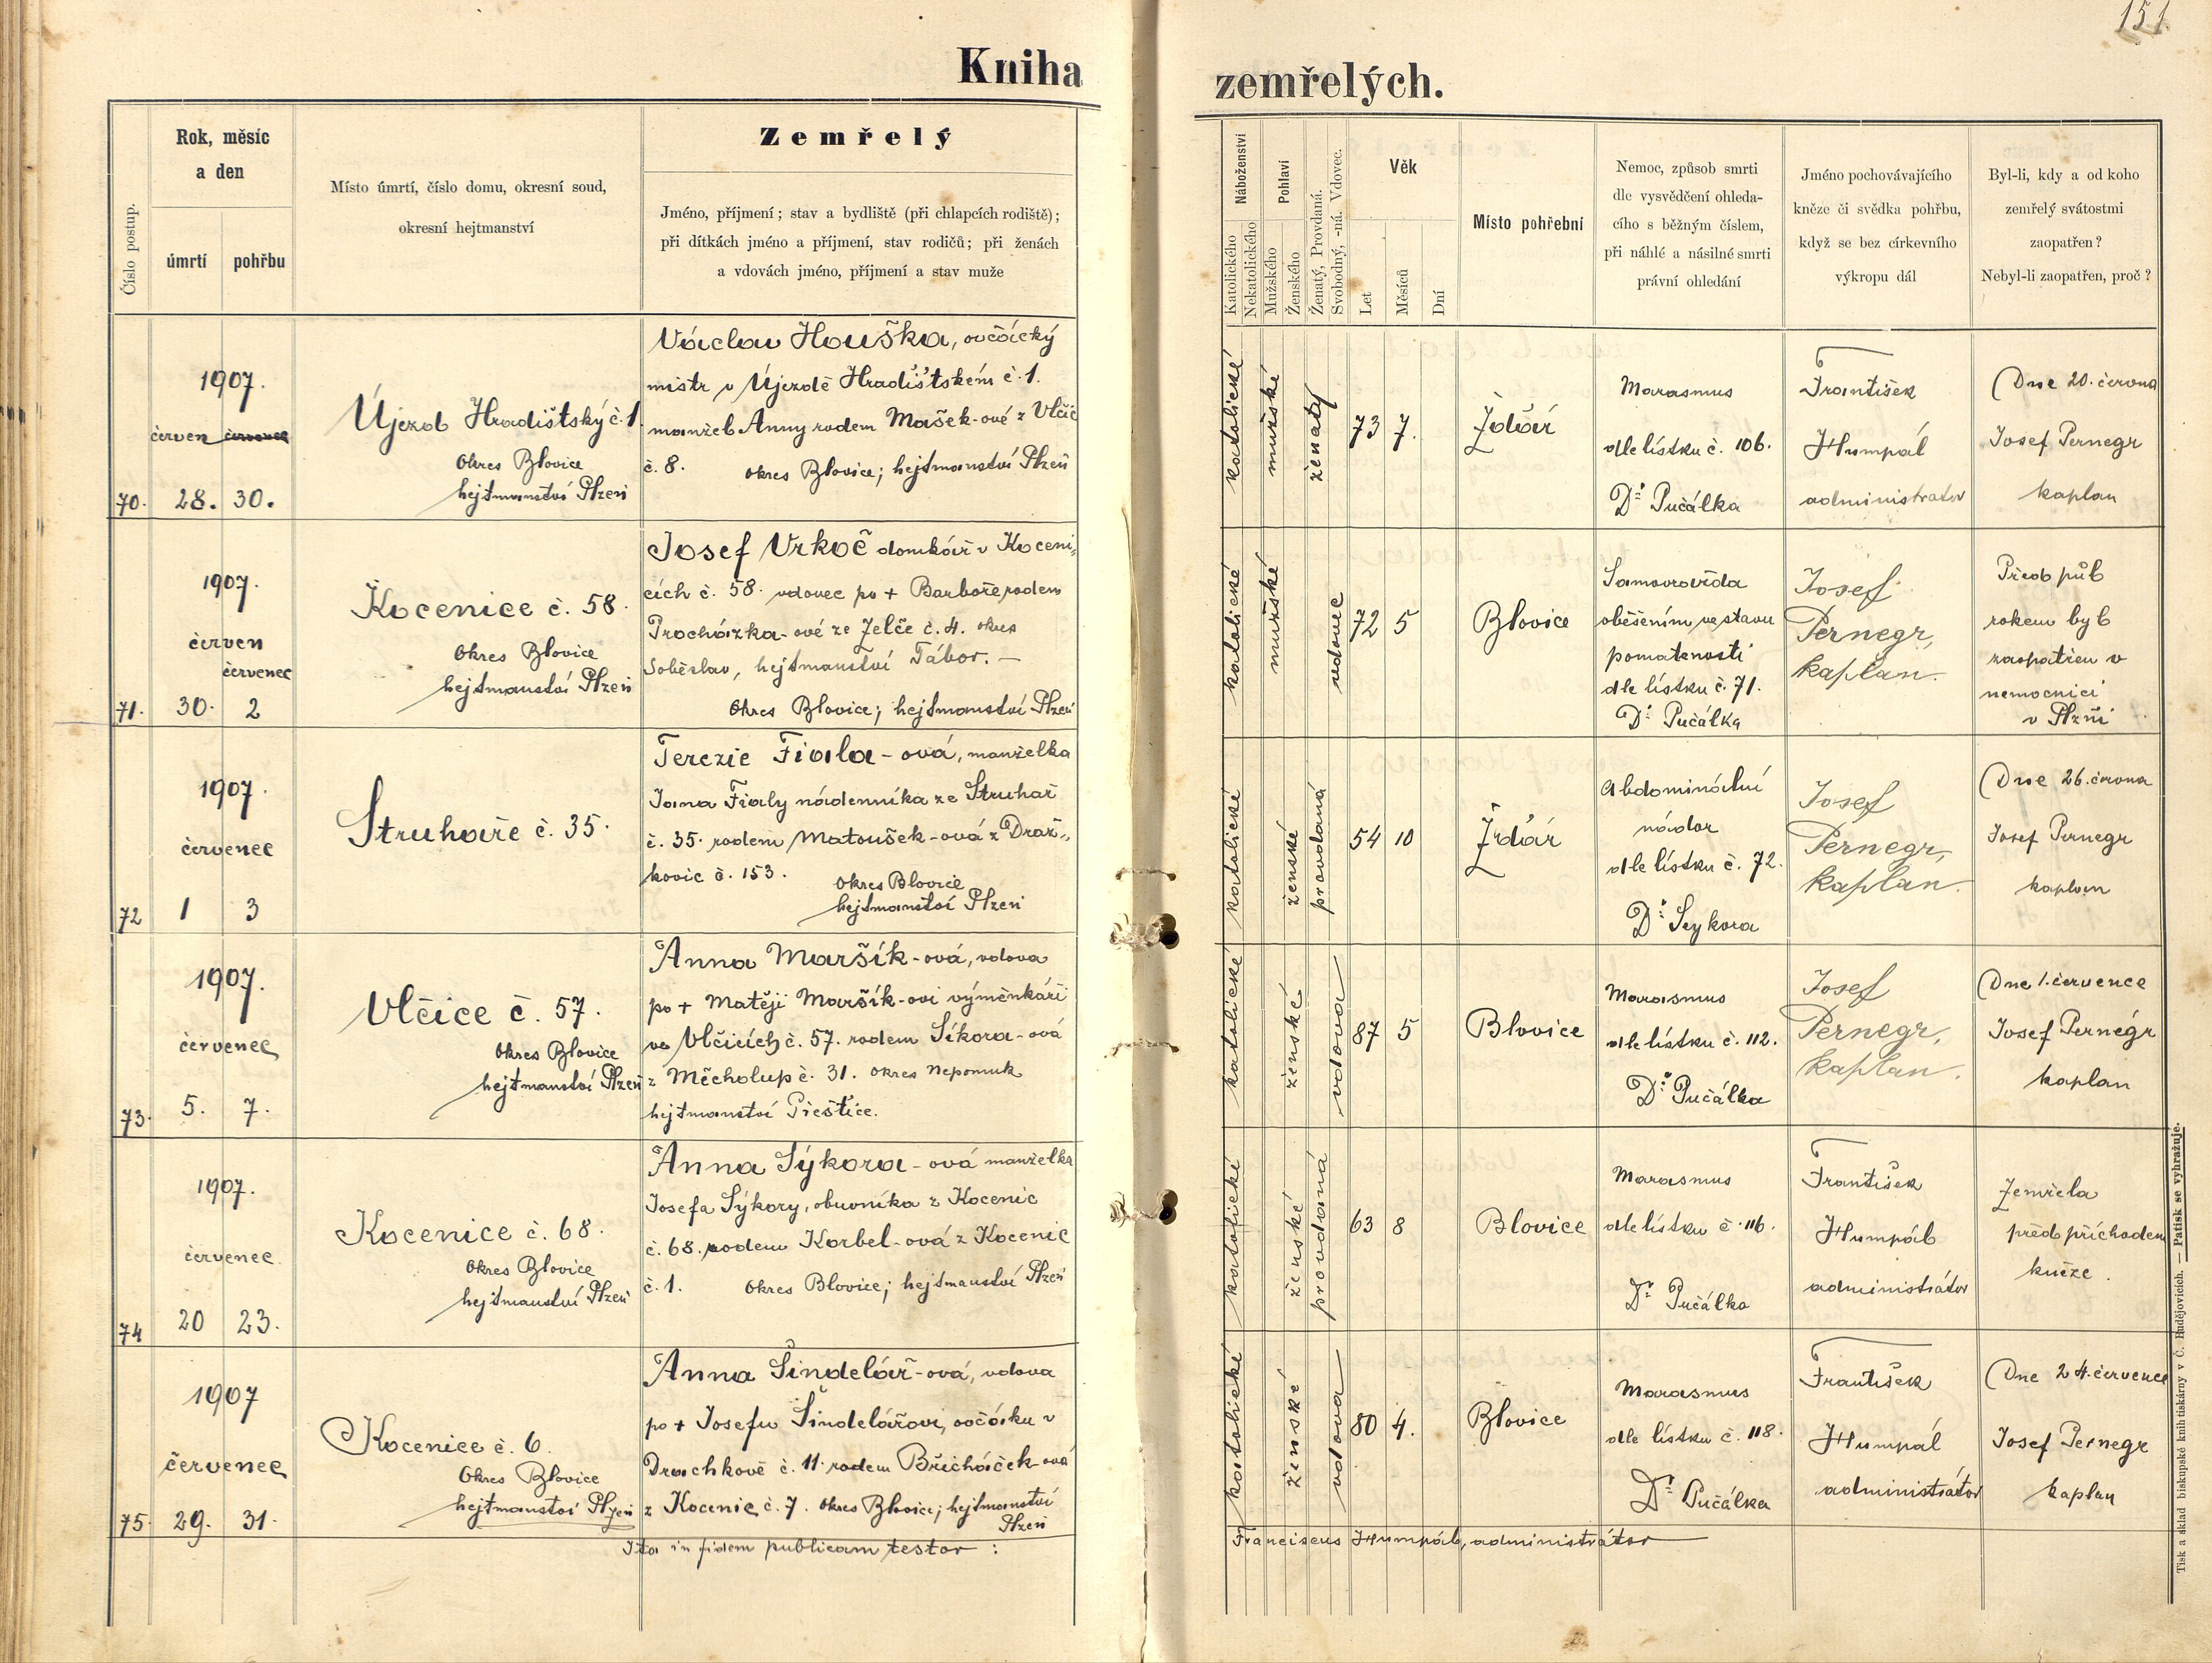 151.
Kniha zemřelých.
Číslo postup.
Rok, měsíc
a den
úmrtí
pohřbu
Místo úmrtí, číslo domu, okresní soud,
okresní hejtmanství
Zemřelý
Jméno, příjmení; stav a bydliště (při chlapcích rodiště);
při dítkách jméno a příjmení, stav rodičů; při ženách
a vdovách jméno, příjmení a stav muže
Náboženství
Katolického
Nekatolického
Pohlaví
Mužského
Ženského
Ženatý, Provdaná.
Svobodný, -ná. Vdovec.
Věk
Let
Měsíců
Dní
Místo pohřební
Nemoc, způsob smrti
dle vysvědčení ohleda-
cího s běžným číslem,
při náhlé a násilné smrti
právní ohledání
Jméno pochovávajícího
kněze či svědka pohřbu,
když se bez církevního
výkropu dál
Byl-li, kdy a od koho
zemřelý svátostmi
zaopatřen?
Nebyl-li zaopatřen, proč?
70.
1907.
červen červenec
28. 30.
Újezd Hradištský č. 1.
Okres Blovice
hejtmanství Plzeň
Václav Houška, ovčácký
mistr v Újezdě Hradištském č. 1.
manžel Anny rodem Mašek-ové z Vlčic
č. 8. okres Blovice; hejtmanství Plzeň
katolické
mužské
ženatý
73 7.
Ždár
Marasmus
dle lístku č. 106.
Dr. Pučálka
František
Humpál
administrator
Dne 20. června
Josef Pernegr
kaplan
71.
1907.
červen
červenec
30. 2
Kocenice č. 58.
Okres Blovice
hejtmanství Plzeň
Josef Vrkoč domkář v Koceni-
cích č. 58. vdovec po + Barboře rodem
Procházka-ové ze Želče č. 4. okres
Soběslav, hejtmanství Tábor. —
Okres Blovice; hejtmanství Plzeň
katolické
mužské
vdovec
72 5
Blovice
Samovražda
oběšením ve stavu
pomatenosti
dle lístku č. 71.
Dr. Pučálka
Josef
Pernegr,
kaplan.
Před půl
rokem byl
zaopatřen v
nemocnici
v Plzni
72
1907.
červenec
1 3
Struhaře č. 35.
Terezie Fiala-ová, manželka
Jana Fialy nádenníka ze Struhař
č. 35. rodem Matoušek-ová z Drař-
kovic č. 153.
Okres Blovice
hejtmanství Plzeň
katolické
ženské
provdaná
54 10
Ždár
Abdominální
nádor
dle lístku č. 72.
Dr. Seykora
Josef
Pernegr,
kaplan.
Dne 26. června
Josef Pernegr
kaplan
73.
1907.
červenec
5. 7.
Vlčice č. 57.
Okres Blovice
hejtmanství Plzeň
Anna Maršík-ová, vdova
po + Matěji Maršík-ovi výměnkáři
ve Vlčicích č. 57. rodem Síkora-ová
z Měcholup č. 31. okres Nepomuk
hejtmanství Přeštice.
katolické
ženské
vdova
87 5
Blovice
Marasmus
dle lístku č. 112.
Dr. Pučálka
Josef
Pernegr,
kaplan.
Dne 1. července
Josef Pernegr
kaplan
74
1907.
červenec
20 23.
Kocenice č. 68.
Okres Blovice
hejtmanství Plzeň
Anna Sýkora-ová manželka
Josefa Sýkory, obuvníka z Kocenic
č. 68. rodem Korbel-ová z Kocenic
č. 1. Okres Blovice; hejtmanství Plzeň
katolické
ženské
provdaná
63 8
Blovice
Marasmus
dle lístku č. 116.
Dr. Pučálka
František
Humpál
administrátor
Zemřela
před příchodem
kněze.
75.
1907
červenec
29. 31.
Kocenice č. 6.
Okres Blovice
hejtmanství Plzeň
Anna Šindelář-ová, vdova
po + Josefu Šindelářovi, ovčáku v
Drachkově č. 11. rodem Břicháček-ová
z Kocenic č. 7. okres Blovice; hejtmanství
Plzeň
katolické
ženské
vdova
80 4.
Blovice
Marasmus
dle lístku č. 118.
Dr. Pučálka
František
Humpál
administrátor
Dne 24. července
Josef Pernegr
kaplan
Ita in fidem publicam testor: Franciscus Humpál, administrátor
Tisk a sklad biskupské knihtiskárny v Č. Budějovicích. — Patisk se vyhražuje.